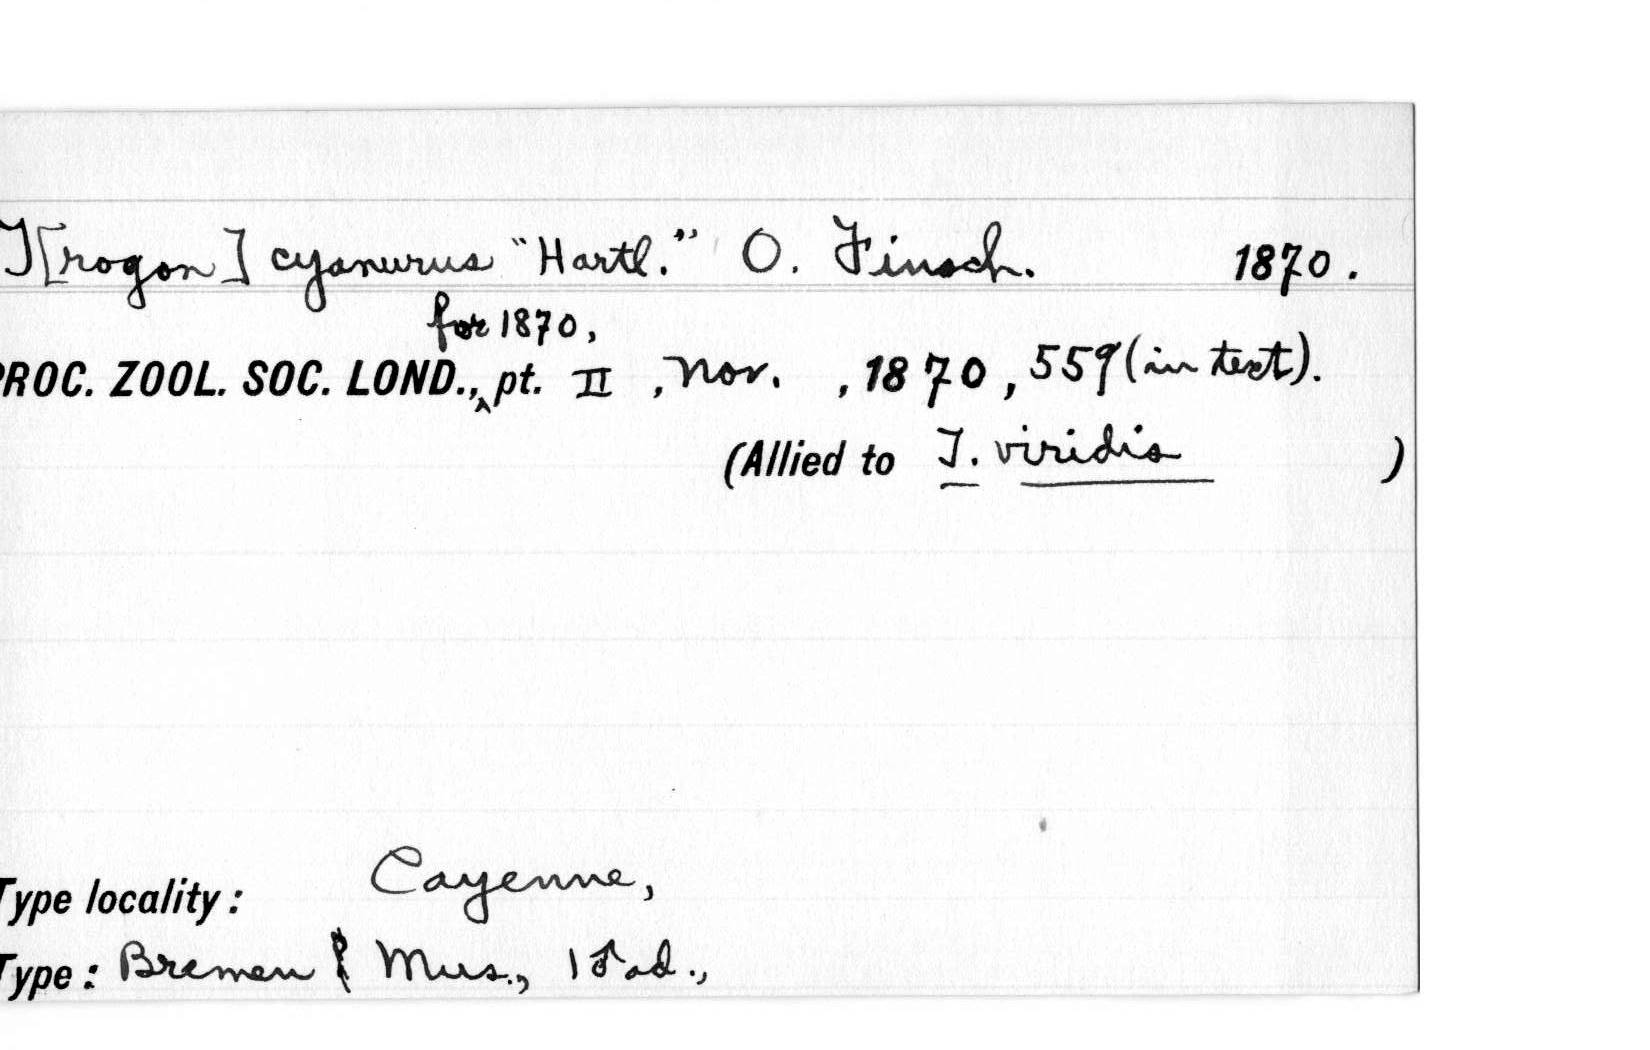 T[rogon] cyanurus "Hartl." O. Finsch. 1870.
for 1870,
PROC. ZOOL. SOC. LOND., pt. II, Nov., 1870, 559 (in text).
(Allied to T. viridis)
Type locality: Cayenne,
Type: Bremen Mus., 1 ♂ ad.,